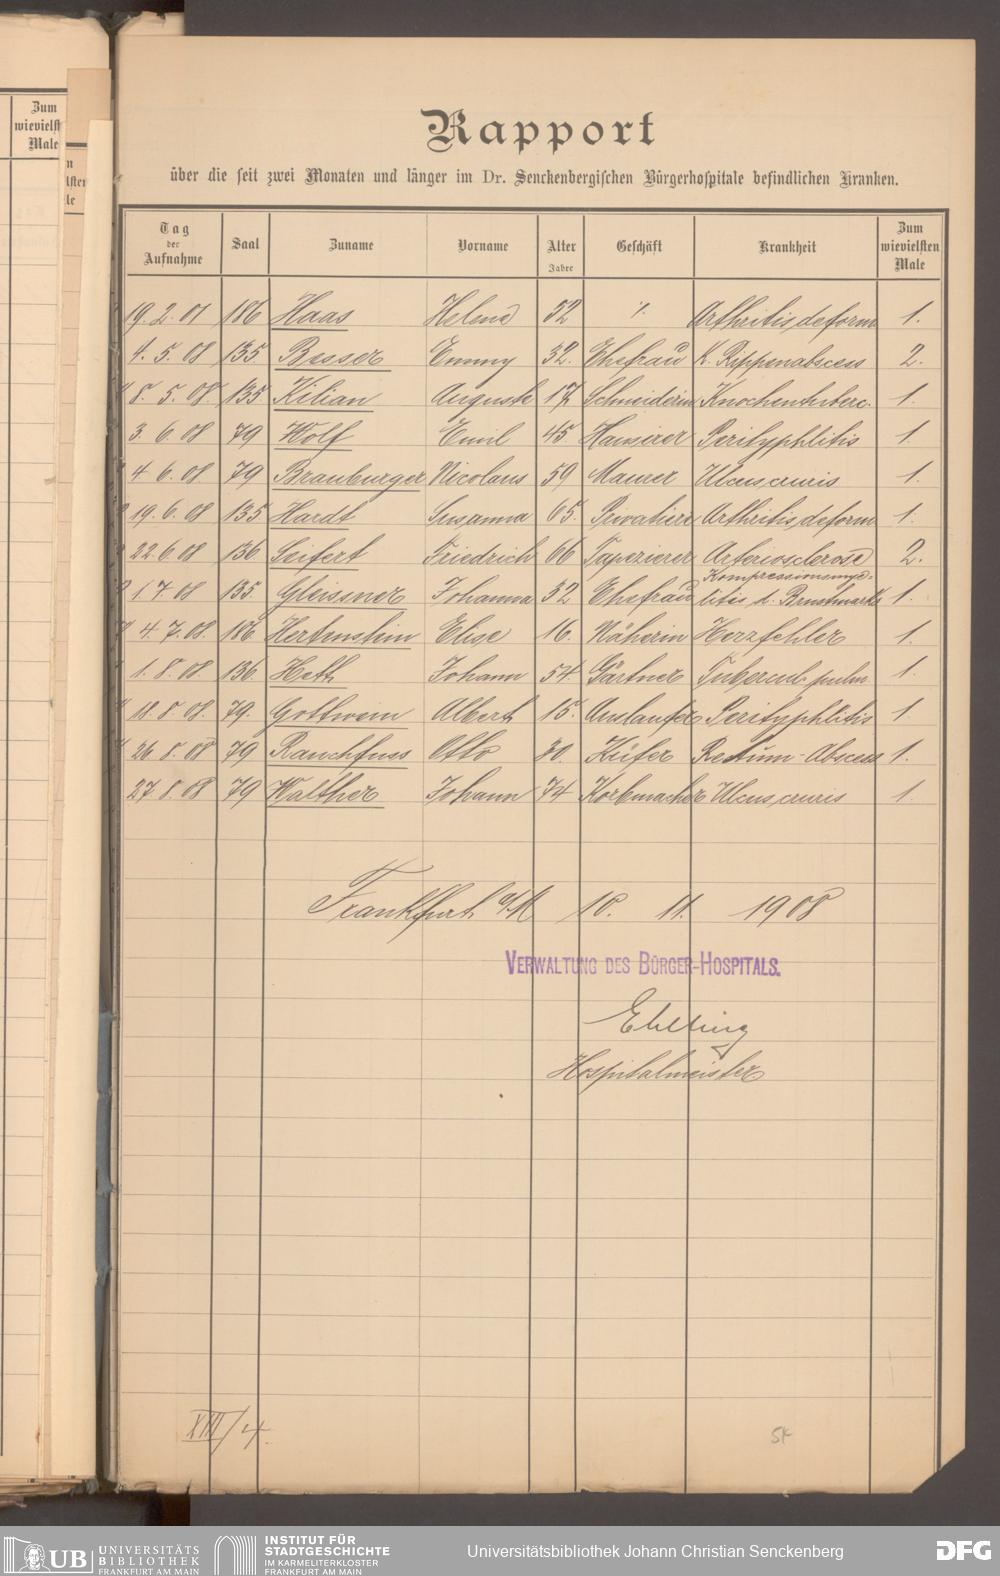 Zum
wievielst
Male
Rapport
über die seit zwei Monaten und länger im Dr. Senckenbergischen Bürgerhospitale befindlichen Kranken.
Tag der Aufnahme Saal Zuname Vorname Alter Jahre Geschäft Krankheit Zum wievielsten Male
19. 2. 01 186 Haas Helene 52 ·/· Arthritis deform 1.
4. 5. 08 135. Besser Emmy 32. Ehefrau K. Rippenabscess 2.
8. 5. 08 135 Kilian Auguste 17. Schneiderin Knochentuberc. 1.
3. 6. 08 79 Wolf Emil 45. Hausirer Perityphlitis 1.
4. 6. 08 79 Brauburger Nicolaus 59 Maurer Ulcus cruris 1.
19. 6. 08 135 Hardt Susanna 65. Privatiere Arthritis deform 1.
22. 6. 08 136. Seifert Friedrich 66 Tapezierer Arteriosclerose 2.
1. 7. 08 135. Gleissner Johanna 32 Ehefrau Kompressionsmye-
litis d. Brustmarks 1.
4. 7. 08. 186 Hertenstein Elise 16. Näherin Herzfehler 1.
1. 8. 08. 136. Heth Johann 54. Gärtner Tubercul. pulm. 1.
18. 8. 08. 79. Gottwein Albert 15. Auslaufer Perityphlitis 1
26. 8. 08 79 Rauchfuss Otto 30. Küfer Rectum-Abscess 1.
27. 8. 08 79 Walther Johann 74 Korbmacher Ulcus cruris 1.
Frankfurt a/M 10. 11. 1908
VERWALTUNG DES BÜRGER-HOSPITALS.
Ehlting
Hospitalmeister
XIII/4.
UB UNIVERSITÄTS
BIBLIOTHEK
FRANKFURT AM MAIN
INSTITUT FÜR
STADTGESCHICHTE
IM KARMELITERKLOSTER
FRANKFURT AM MAIN
Universitätsbibliothek Johann Christian Senckenberg
DFG